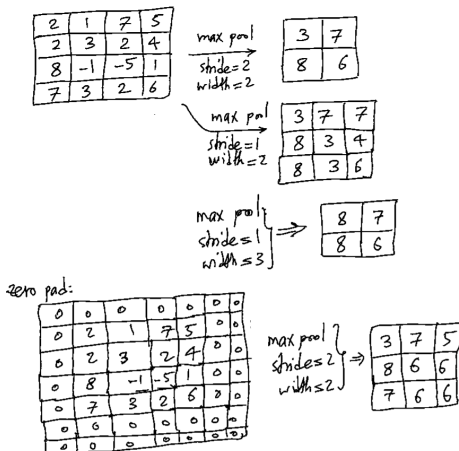 2 1 7 5
2 3 2 4
8 -1 -5 1
7 3 2 6
max pool
stride=2
width=2
3 7
8 6
max pool
stride=1
width=2
3 7 7
8 3 4
8 3 6
max pool
stride=1
width=3
⇒
8 7
8 6
zero pad:
0 0 0 0 0 0 0
0 2 1 7 5 0 0
0 2 3 2 4 0 0
0 8 -1 -5 1 0 0
0 7 3 2 6 0 0
0 0 0 0 0 0 0
0 0 0 0 0 0 0
max pool
stride=2
width=2
⇒
3 7 5
8 6 6
7 6 6